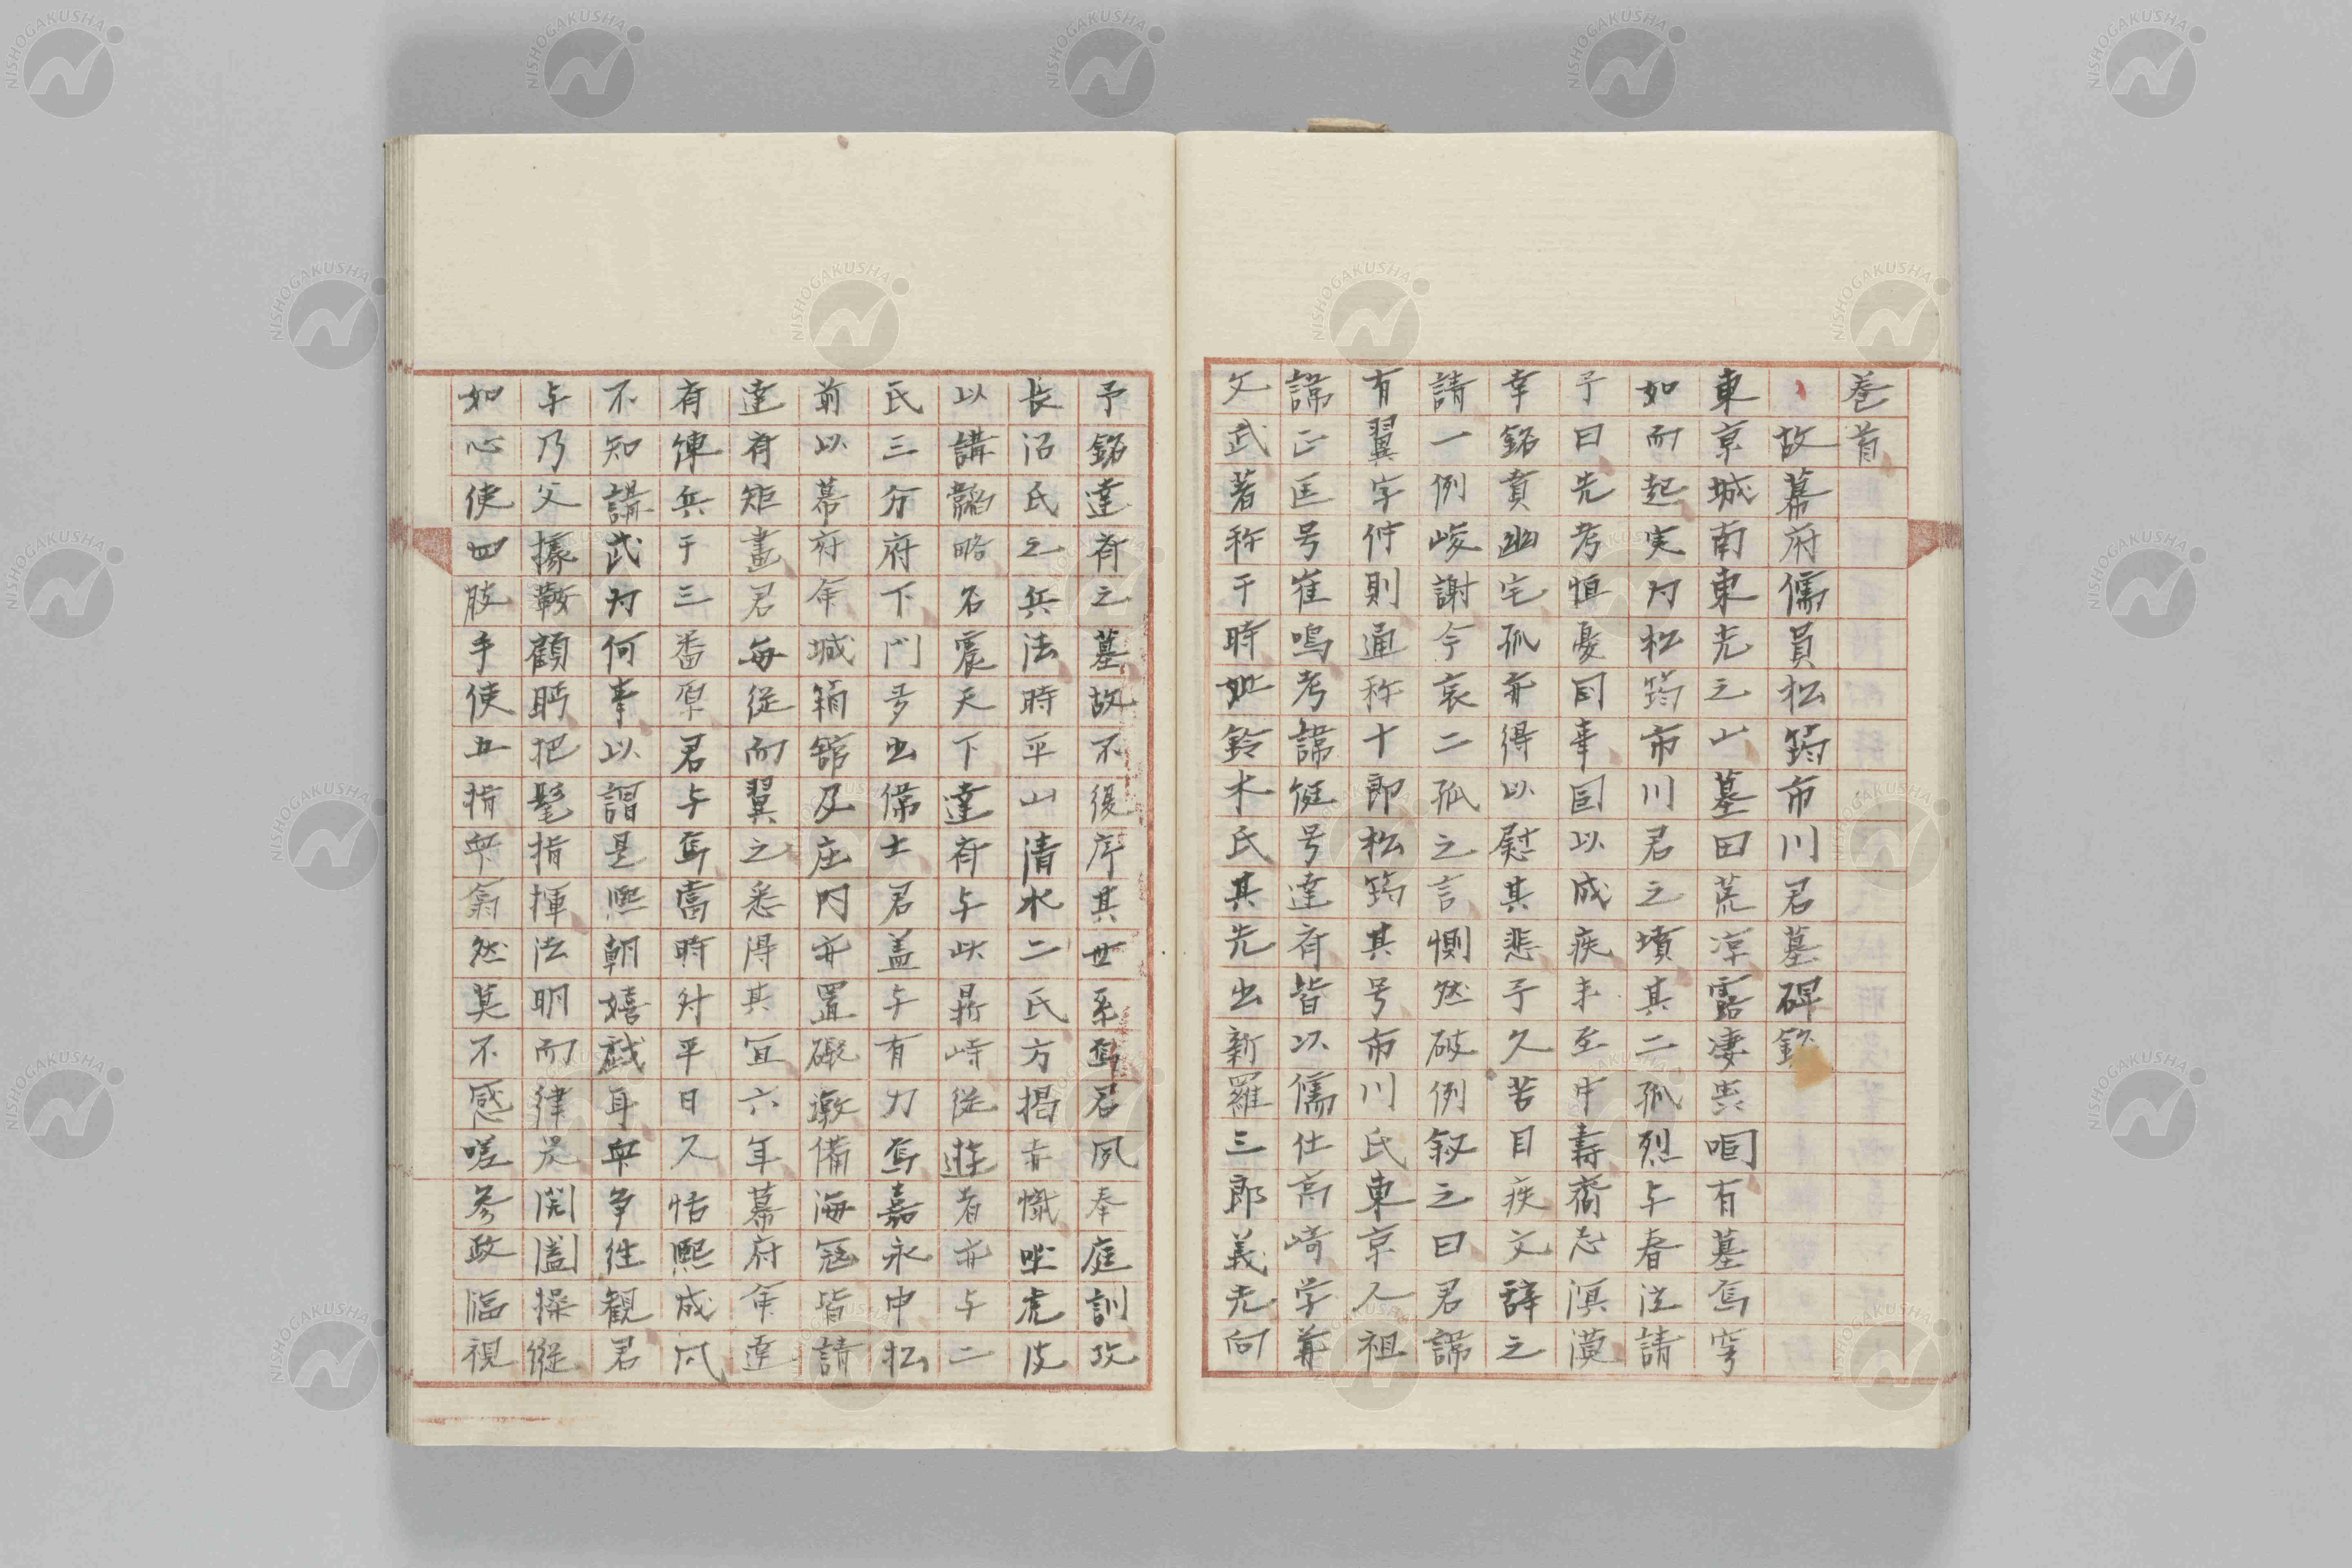 巻首
故幕府儒員松筠市川君墓碑銘
東京城南東光之山墓田荒凉露凄
如而起実为松筠市川君之墳其二孤烈与春泣請
予曰先考恒憂国事因以成疾未至中壽齎志溟漠
幸銘賁幽宅孤亦得以慰其悲予久苦目疾文辞之
請一例峻謝今哀二孤之言惻然破例叙之曰君諱
有翼字仲則通称十郎松筠其号市川氏東京人祖
諱正匡号崔鳴考諱侹号達斎皆以儒仕高崎学兼
文武著称于時妣鈴木氏其先出新羅三郎義光向
予銘達斎之墓故不復序其世系焉君夙奉庭訓攻
長沼氏之兵法時平山清水二氏方揭赤幟坐虎皮
以講韜略名震天下達斎与此鼎峙従遊者亦与二
氏三分府下門多出偉士君盖与有力焉嘉永中松
前以幕府命城箱館及庄内亦置礟墩備海寇皆請
達斎矩畫君每從而翼之悉得其宜六年幕府命達
斎練兵于三番原君与焉當時対平日久恬熙成风
不知講武为何事以謂是熙朝嬉戯耳無争往観君
与乃父據鞍顧眄把髦指揮法明而律嚴開闔操縦
如心使四肢手使五指無氣然莫不感嗟参政臨視